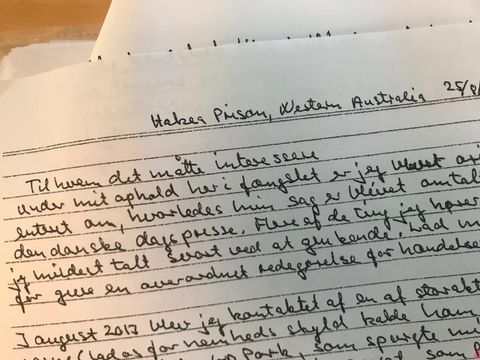 Hakea Prison, Western Australia 25/
Til hvem det måtte interessere
under mit ophold her i fængslet er jeg blevet
entert om, hvorledes min sag er blevet omtalt
den danske dagspresse. Flere af de ting jeg hører
jeg mildest talt svært ved at genkende. Lad
for give en overordnet redegørelse for handelse
I august 2017 blev jeg kontaktet af en af
(lad os for nemheds skyld kalde ham
Park, som spurgte